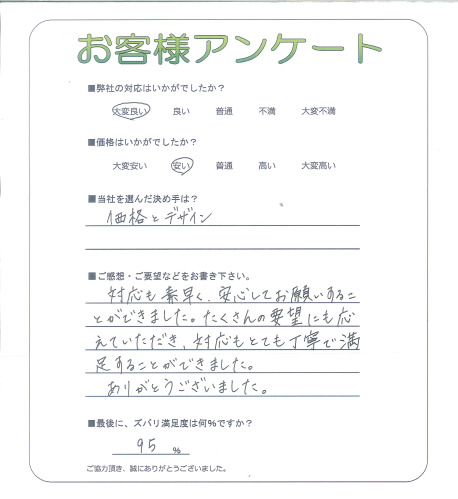 お客様アンケート
■弊社の対応はいかがでしたか？
大変良い 良い 普通 不満 大変不満
■価格はいかがでしたか？
大変安い 安い 普通 高い 大変高い
■当社を選んだ決め手は？
価格とデザイン
■ご感想・ご要望などをお書き下さい。
対応も素早く、安心してお願いするこ
とができました。たくさんの要望にも応
えていただき、対応もとても丁寧で満
足することができました。
ありがとうございました。
■最後に、ズバリ満足度は何％ですか？
95 ％
ご協力頂き、誠にありがとうございました。